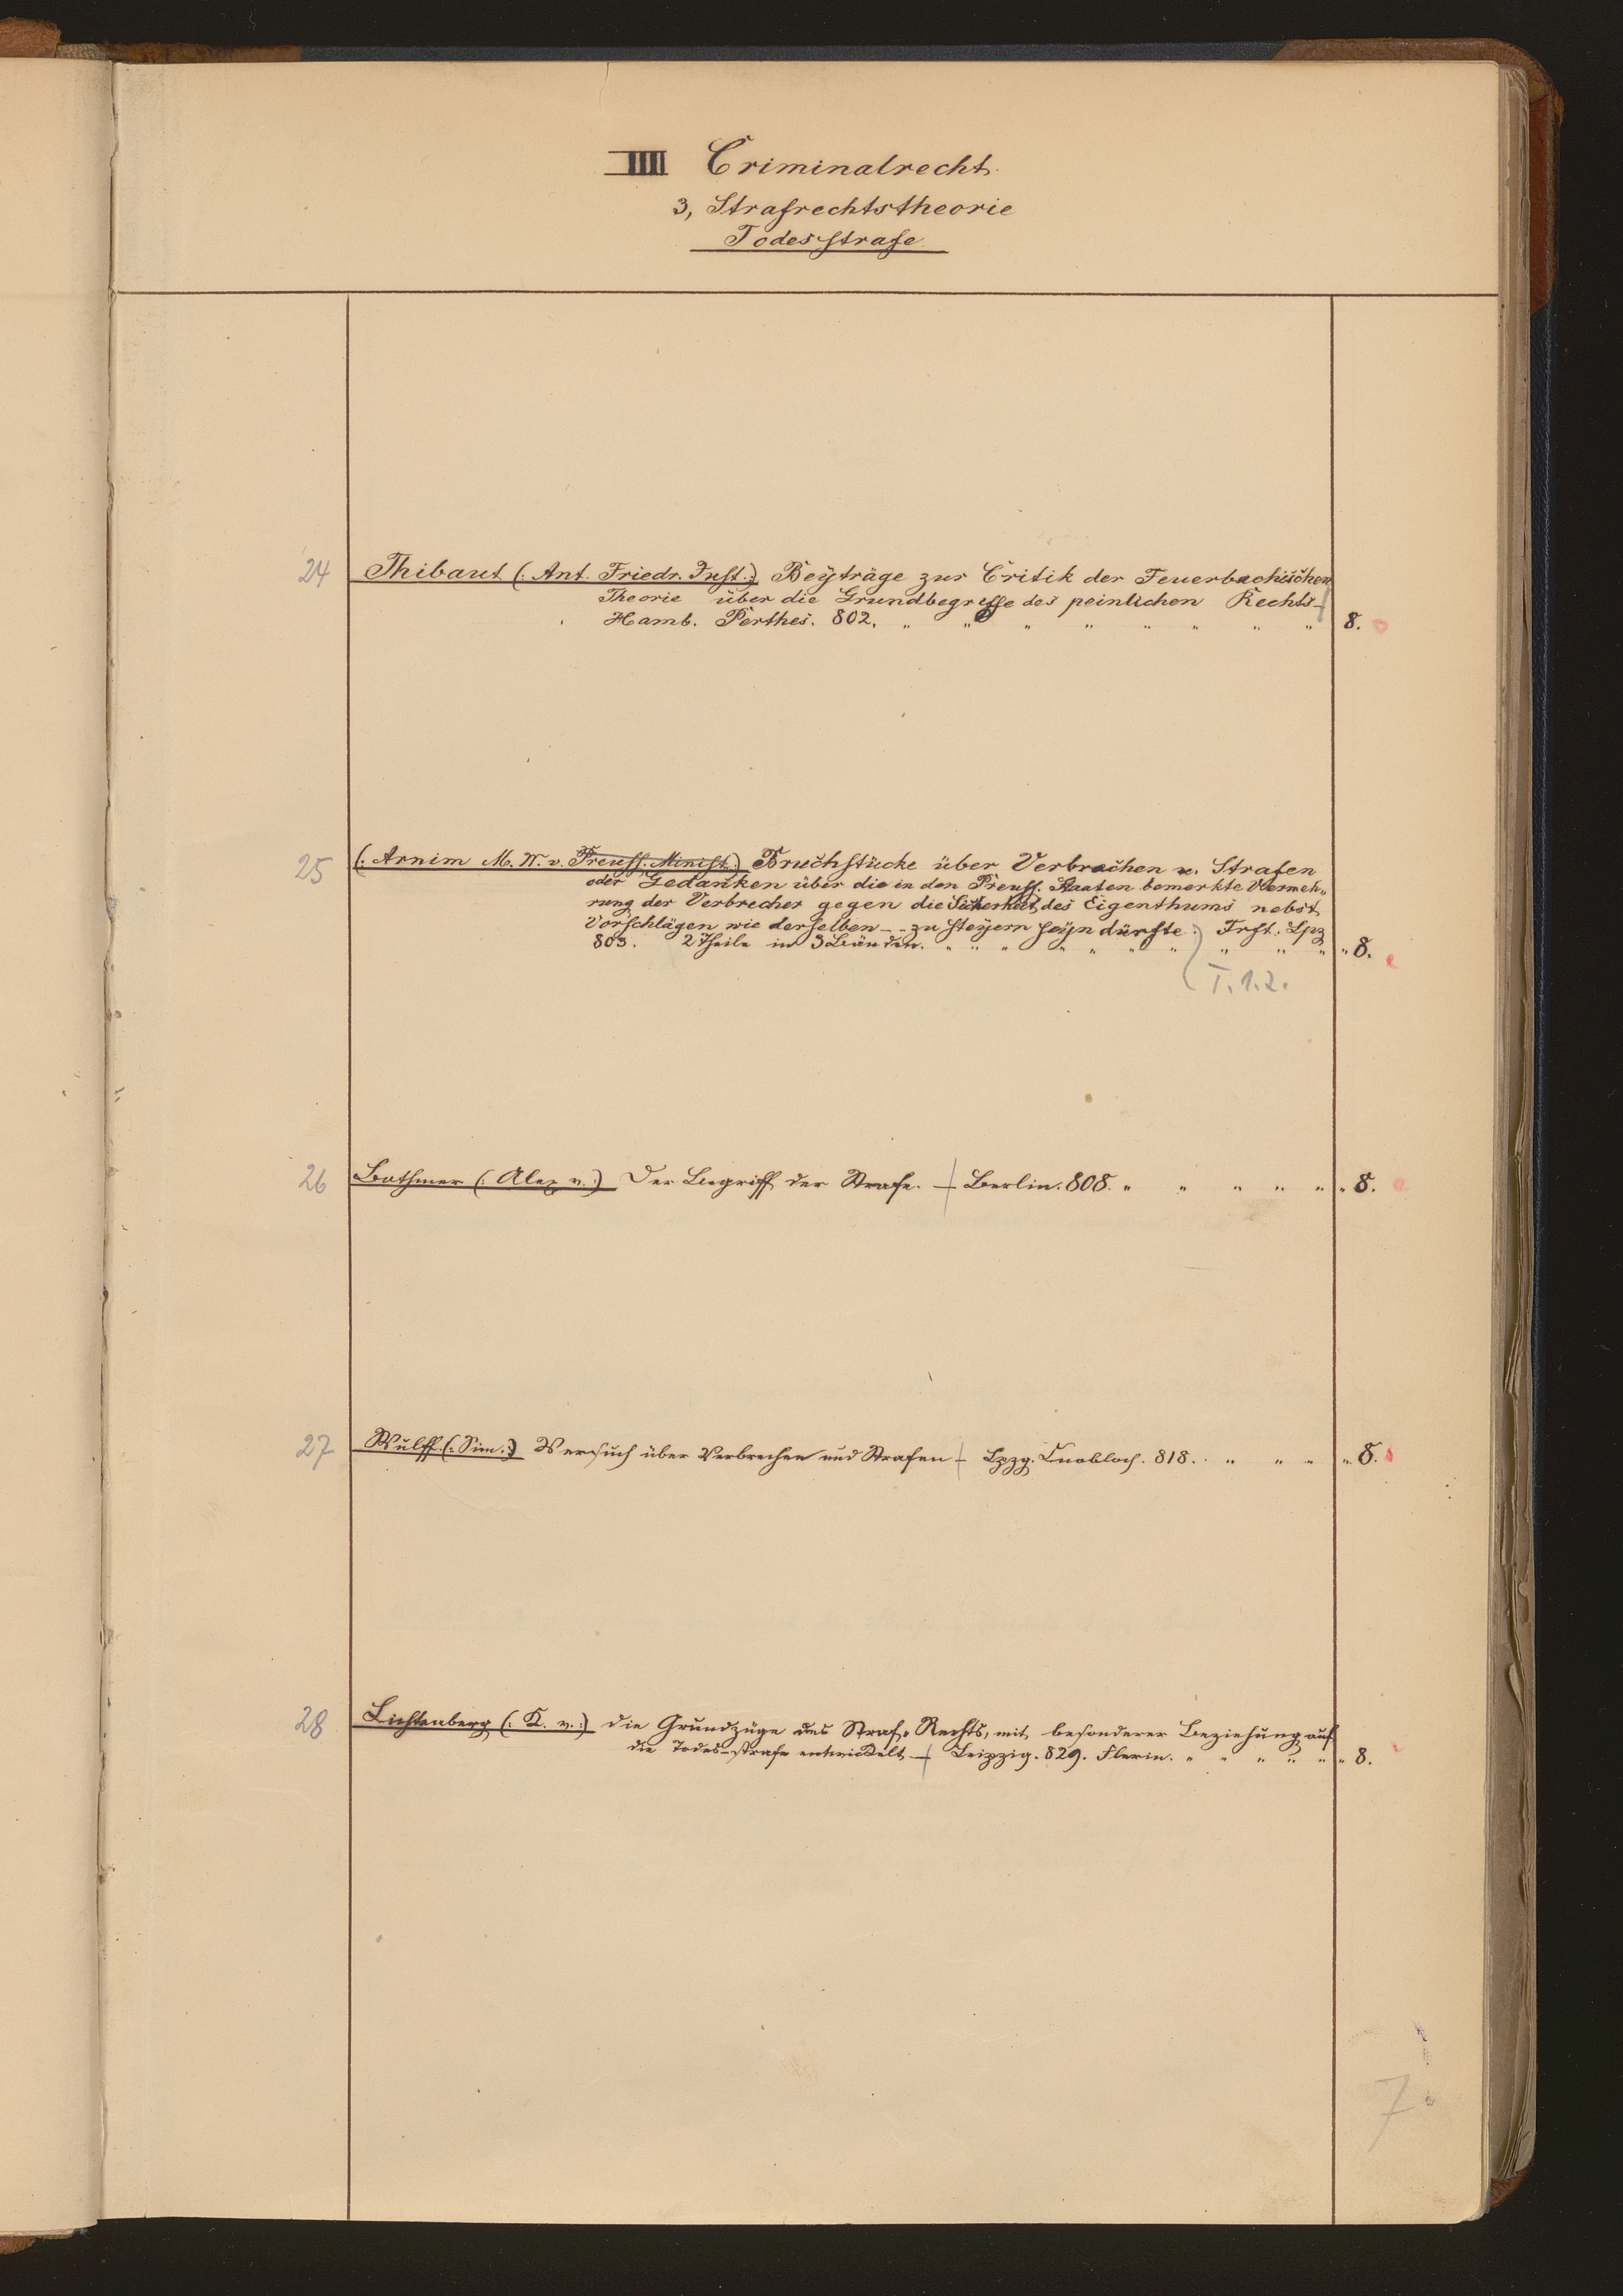 IIII Criminalrecht.
3, Strafrechtstheorie
Todesstrafe
24 Thibaut (: Ant. Friedr. Just. :) Beyträge zur Critik der Feuerbachischen
Theorie über die Grundbegriffe des peinlichen Rechts-
Hamb. Perthes. 802. " " " " " " " " 8.
25 (: Arnim M. W. v. Preuss. Minist. :) Bruchstücke über Verbrechen u. Strafen
oder Gedanken über die in den Preuss. Staaten bemerkte Vermeh-
rung der Verbrecher gegen die Sicherheit des Eigenthums nebst
Vorschlägen wie derselben -- zu steyern seyn dürfte. Frft. Lpz
803. 2 Theile in 3 Bänden. " " " " " " " " " " " 8.
T. 1. 2.
26 Bothmer (: Alex v. :) Der Begriff der Strafe. – Berlin. 808. " " " " " " 8.
27 Wulff (: Sim. :) Versuch über Verbrechen und Strafen – Lpzg. Cnobloch. 818. " " " " 8.
28 Lichtenberg (: K. v. :) die Grundzüge des Straf-Rechts, mit besonderer Beziehung auf
die Todes-strafe entwickelt – Leipzig. 829. " " " " " " 8.
7